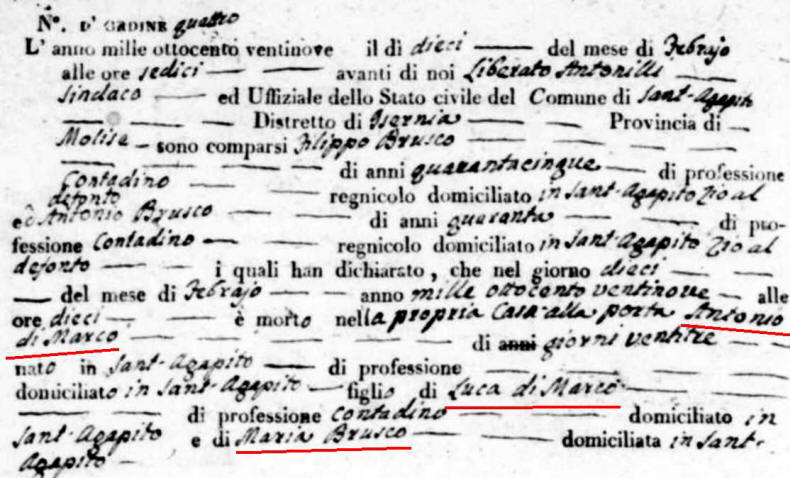 N°. D' ORDINE quattro
L' anno mille ottocento ventinove il dì dieci del mese di Febrajo
alle ore sedici avanti di noi Liberato Antonilli
Sindaco ed Uffiziale dello Stato civile del Comune di Sant-Agapito
Distretto di Isernia Provincia di
Molise sono comparsi Filippo Brusco
di anni quarantacinque di professione
Contadino regnicolo domiciliato in Sant-Agapito Zio al
defonto
ed Antonio Brusco di anni quaranta di pro-
fessione Contadino regnicolo domiciliato in Sant-Agapito Zio al
defonto i quali han dichiarato, che nel giorno dieci
del mese di Febrajo anno mille ottocento ventinove alle
ore dieci è morto nella propria Casa alla porta Antonio
di Marco di anni giorni ventitre
nato in Sant-Agapito di professione
domiciliato in Sant-Agapito figlio di Luca di Marco
di professione Contadino domiciliato in
Sant-Agapito e di Maria Brusco domiciliata in Sant-
Agapito